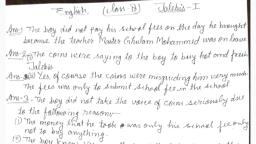 English (class-8) Jalebis-I
Ans:1 The boy did not pay his school fees on the day he brought
because the teacher Master Ghulam Mohammed was on leave
Ans-2 The coins were saying to the boy to buy hot and fresh
Jalebis
Yes of course the coins were misguiding him very much
The fees was only to submit school fee in the school
Ans-3- The boy did not take the voice of coins seriously due
to the following reasons
(1) The money that he took was only his school fee only
not to buy anything.